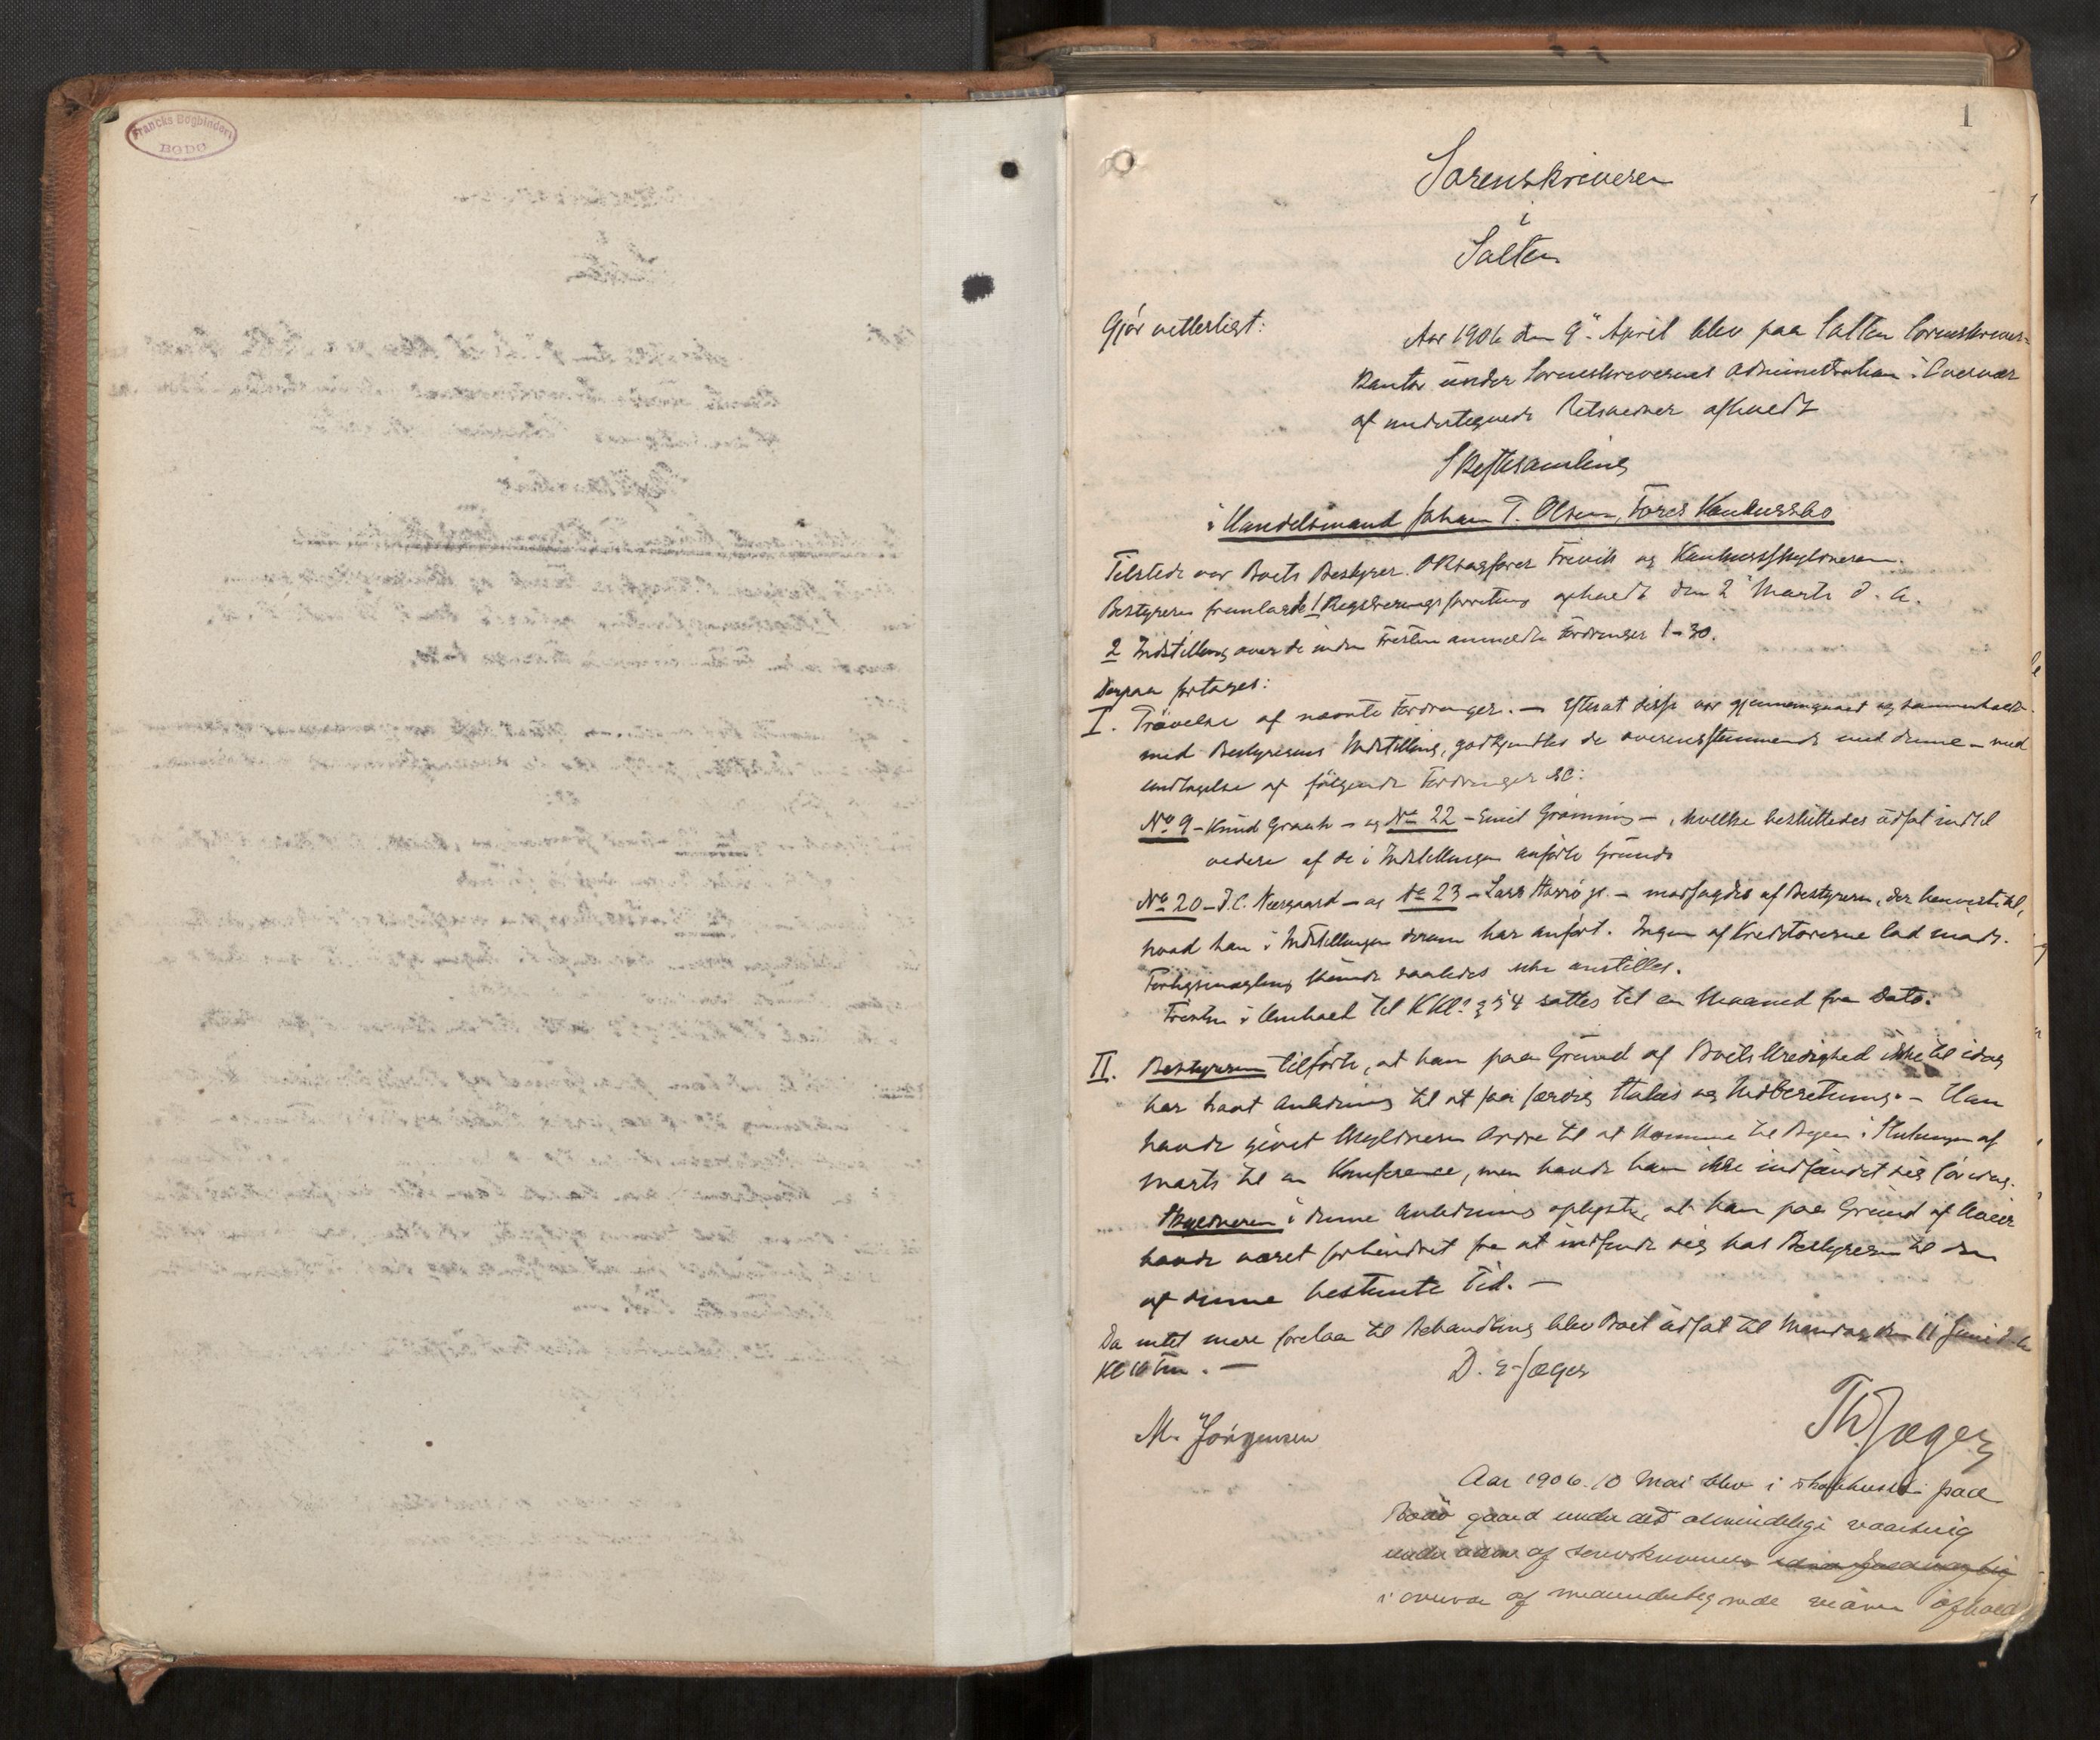 Francks Bogbinderi
BODØ
1
Sorenskriveren
i
Salten
Gjør vitterligt:
Aar 1906 den 9de April blev paa Salten Sorenskriver-
kontor under Sorenskriverens Administration i Overvær
af undertegnede Retsvidner afholdt
Skiftesamling
i Handelsmand Johan T. Olsen, Fores Konkursbo
Tilstede var Boets Bestyrer O.Rsagfører Frivik og Konkursskyldneren.
Bestyreren fremlagde 1 Registreringsforretning afholdt den 2 Marts d. A.
2 Indstilling over de inden Fristen anmeldte Fordringer 1-30.
Derpaa foretages:
I. Prøvelse af nævnte Fordringer. — Efterat disse var gjennemgaaet og sammenholdt
med Bestyrerens Indstilling, godkjendtes de overensstemmende med denne - med
undtagelse af følgende Fordringer sc:
No 9 - Knud Graah - og No 22 - Emil Grønning -, hvilke besluttedes udsat indtil
videre af de i Indstillingen anførte Grunde
No 20 - J.C. Neergaard - og No 23 - Lars - modsagdes af Bestyreren, der henviste til,
hvad han i Indstillingen derom har anført. Ingen af Kreditorerne lod møde.
Forligsmægling kunde saaledes ikke anstilles.
Fristen i Henhold til KKL. § 54 sattes til en Maaned fra Dato.
II. Bestyreren tilførte, at han paa Grund af Boets Uredighed ikke til idag
har havt Anledning til at faa færdig Status og Indberetning. - Han
havde givet Skyldneren Ordre til at komme til Byen i Slutningen af
Marts til en Konference, men havde han ikke indfundet sig før idag.
Skyldneren i denne Anledning oplyste, at han paa Grund af Uveir
havde været forhindret fra at indfinde sig hos Bestyreren til den
af denne bestemte Tid. —
Da intet mere forelaa til Behandling blev Boet udsat til Mandag den 11 Juni d. A
Kl 10 Fm. —
D. E Jæger
Th. Jæger
M. Jørgensen
Aar 1906. 10 Mai blev i paa
Bodø gaard under det almindelige vaarting
under adm af sorenskriveren
i overvær af medundertegnede vidner afhold